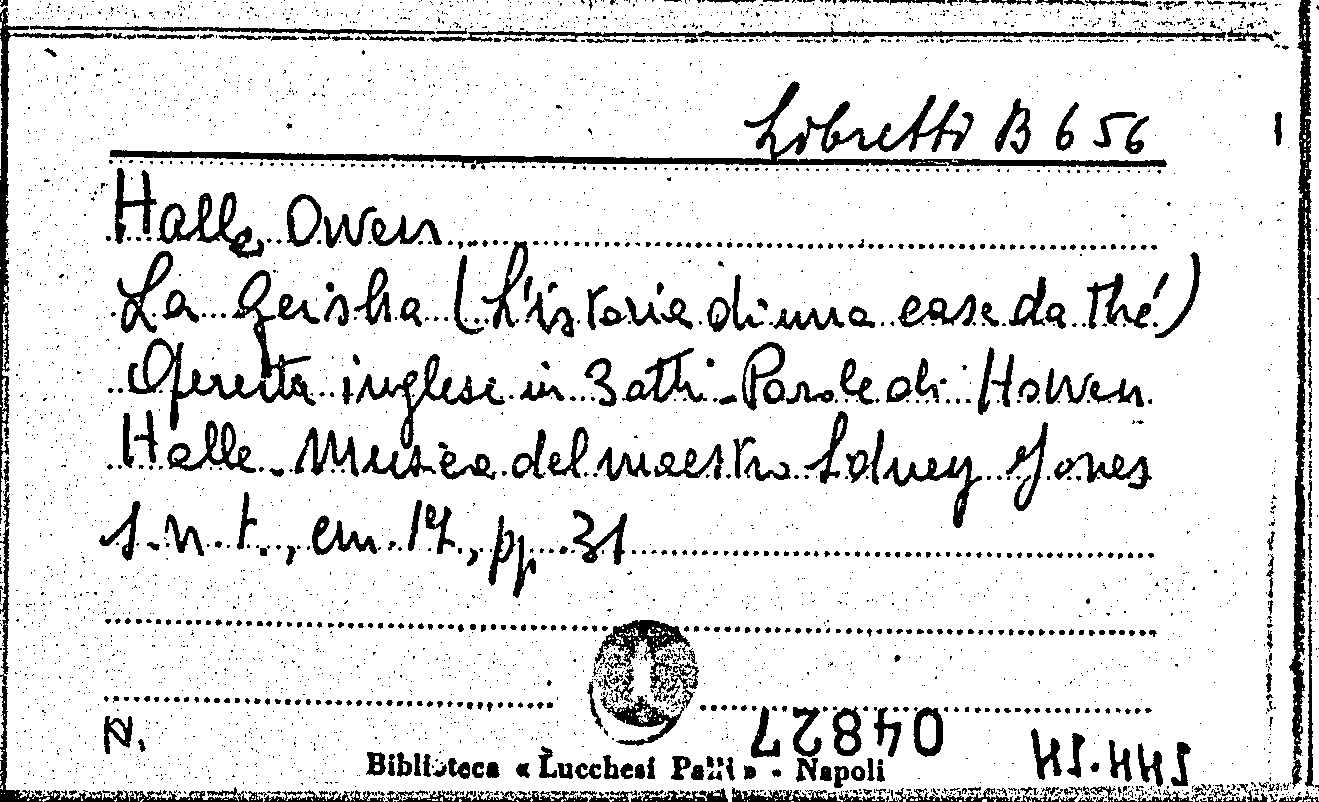 Libretti B 656
Halle Owen
La Geisha (L'istoria di una casa da thé)
Operetta inglese in 3 atti - Parole di Howen
Halle - Musica del maestro Sdney Jones
s.n.t., cm. 17, pp. 31
N.
04827
Biblioteca « Lucchesi Palli » - Napoli